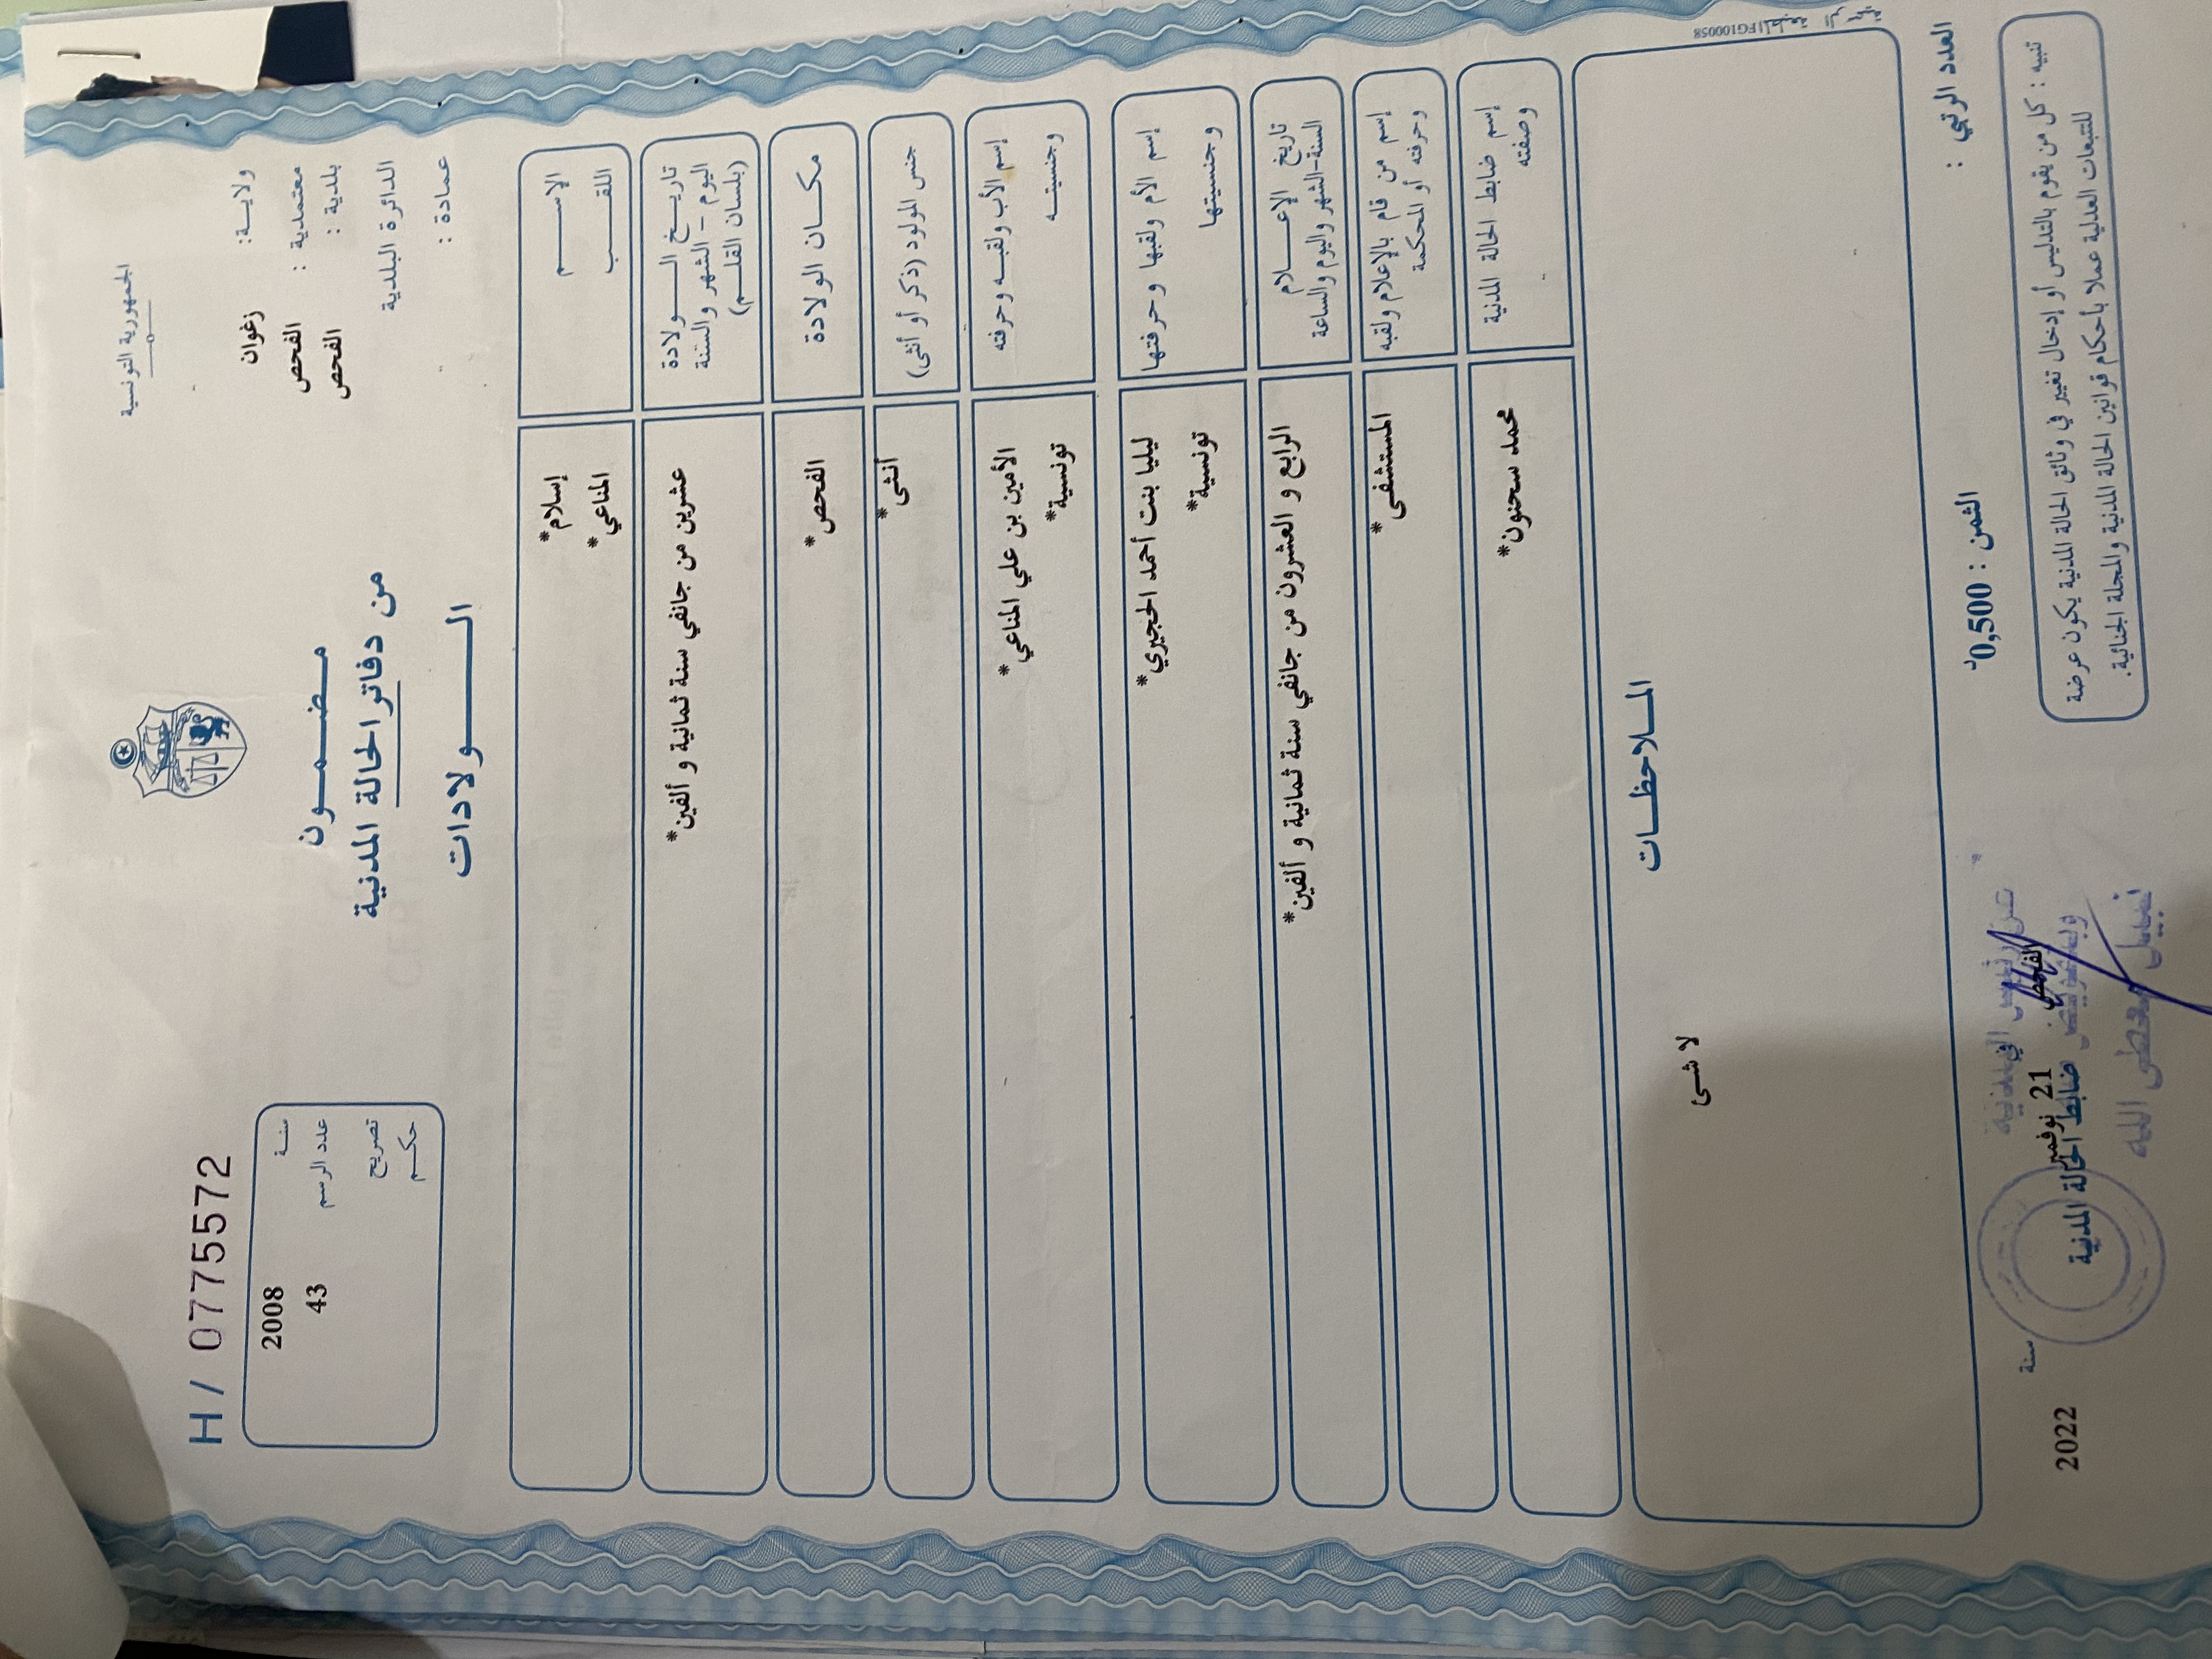 الجمهورية التونسية
ولاية: زغوان
معتمدية : الفحص
بلدية : الفحص
الدائرة البلدية
عمادة :
H / 0775572
سنة 2008
عدد الرسم 43
تصريح
حكم
مضمون
من دفاتر الحالة المدنية
الولادات
الإسم إسلام*
اللقب المناعي*
تاريخ الولادة
اليوم - الشهر والسنة
(بلسان القلم)
عشرين من جانفي سنة ثمانية و ألفين*
مكان الولادة الفحص*
جنس المولود (ذكر أو أنثى) أنثى*
إسم الأب ولقبه وحرفته الأمين بن علي المناعي*
وجنسيته تونسية*
إسم الأم ولقبها وحرفتها ليليا بنت أحمد الحجيري*
وجنسيتها تونسية*
تاريخ الإعلام
السنة-الشهر واليوم والساعة
الرابع و العشرون من جانفي سنة ثمانية و ألفين*
إسم من قام بالإعلام ولقبه
وحرفته أو المحكمة
المستشفى*
إسم ضابط الحالة المدنية
وصفته
محمد سحنون*
الملاحظات
لا شئ
FG100058
العدد الرتبي :
الثمن : 0,500د
الفحص 21 نوفمبر سنة 2022
ضابط الحالة المدنية
تنبيه : كل من يقوم بالتدليس أو إدخال تغيير في وثائق الحالة المدنية يكون عرضة
للتتبعات العدلية عملا بأحكام قوانين الحالة المدنية والمجلة الجنائية.